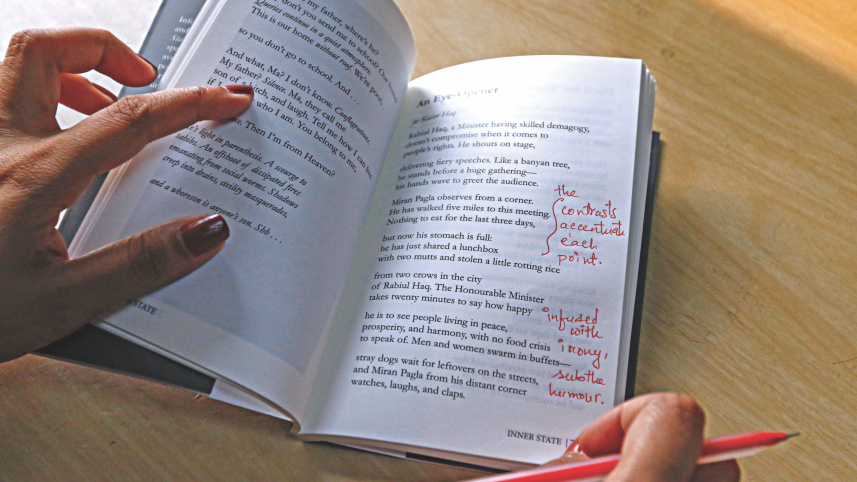 my father, where's he?
don't you send me to school? Our
Queries continue in a quiet atmosphere.
This is our home without roof. We're poor,
so you don't go to school. And . . .
And what, Ma? I don't know. Conflagrations.
My father? Silence. Ma, they call me
son of a bitch, and laugh. Tell me how I can live,
if I who I am. You belong to me,
Then I'm from Heaven?
light in parenthesis. A scourge to
sahibs. An offshoot of dissipated fires
emanating from social worms. Shadows
creep into drains, civility masquerades,
and a whoreson is anyone's son. Shh . . .
STATE
An Eye-Opener
Rabiul Haq, a Minister having skilled demagogy,
doesn't compromise when it comes to
people's rights. He shouts on stage,
delivering fiery speeches. Like a banyan tree,
he stands before a huge gathering—
his hands wave to greet the audience.
Miran Pagla observes from a corner.
He has walked five miles to this meeting.
Nothing to eat for the last three days,
but now his stomach is full:
he has just shared a lunchbox
with two mutts and stolen a little rotting rice
from two crows in the city
of Rabiul Haq. The Honourable Minister
takes twenty minutes to say how happy
he is to see people living in peace,
prosperity, and harmony, with no food crisis
to speak of. Men and women swarm in buffets—
stray dogs wait for leftovers on the streets,
and Miran Pagla from his distant corner
watches, laughs, and claps.
INNER STATE |
the
contrasts
accentuate
each
point.
infused
with
irony,
subtle
humour.